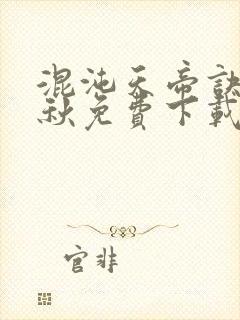 混沌天帝訣
秋免費下載
官非